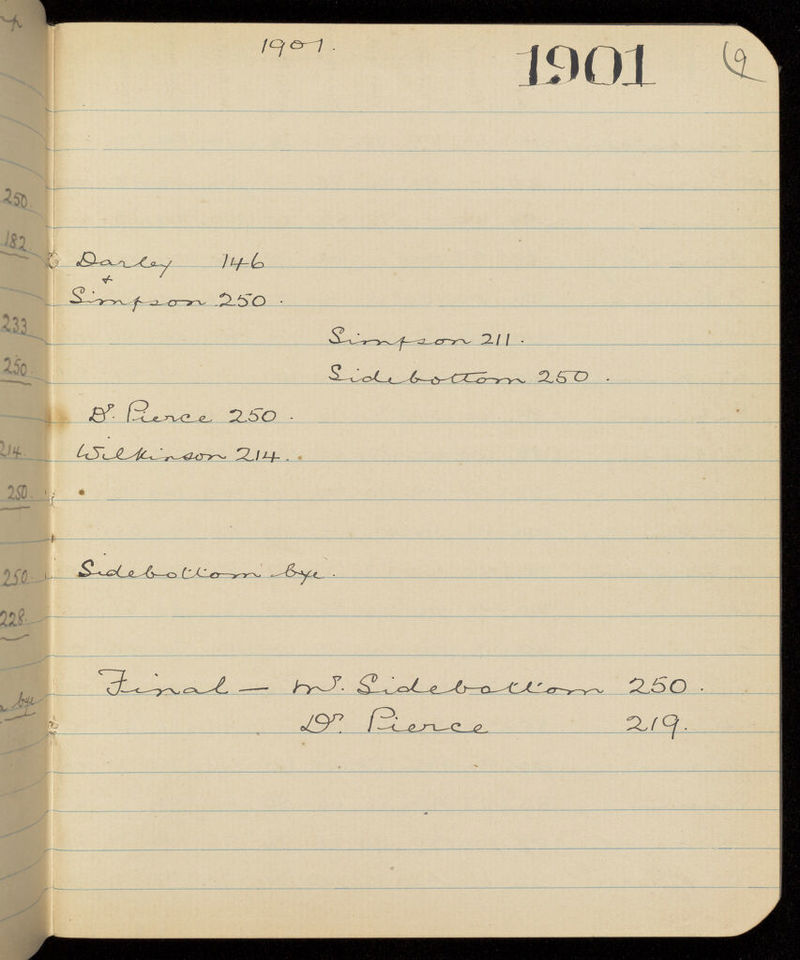 1901.
1901
9
Darley 146
+
Simpson 250.
Simpson 211.
Sidebottom 250.
Dr. Pierce 250.
Wilkinson 214.
Sidebottom bye.
Final — Mr. Sidebottom 250.
Dr. Pierce 219.
250.
182
233
250.
214
250.
250.
228.
bye